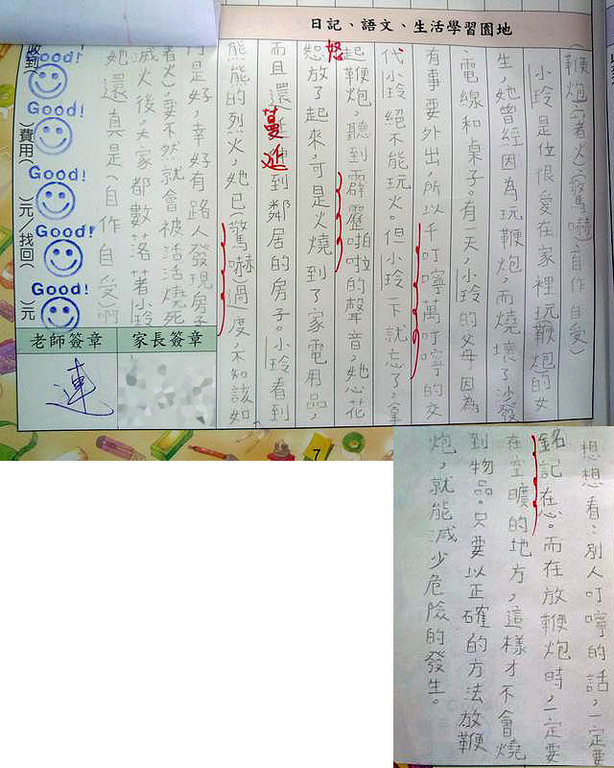 日記、語文、生活學習園地
(鞭炮)(著火)(驚嚇)(自作自受)
小玲是位很愛在家裡玩鞭炮的女
生,她曾經因為玩鞭炮,而燒壞了沙發
、電線和桌子。有一天,小玲的父母因為
有事要外出,所以千叮嚀萬叮嚀的交
代小玲絕不能玩火。但小玲一下就忘了,拿
起鞭炮,聽到霹靂啪啦的聲音,她心花
怒
恕放了起來,可是火燒到了家電用品,
而且還到鄰居的房子。小玲看到
蔓延
熊熊的烈火,她已(驚嚇)過度,不知該如
何是好,幸好有路人發現房子
著火)要不然就會被活活燒死
滅火後,大家都數落著小玲
她還真是(自作自受)啊
Good!
Good!
Good!
Good!
Good!
收到(
)費用(
)元/找回(
)元
家長簽章
老師簽章
連
7
想想看:別人叮嚀的話,一定要
銘記在心。而在放鞭炮時,一定要
在空曠的地方,這樣才不會燒
到物品。只要以正確的方法放鞭
炮,就能減少危險的發生。